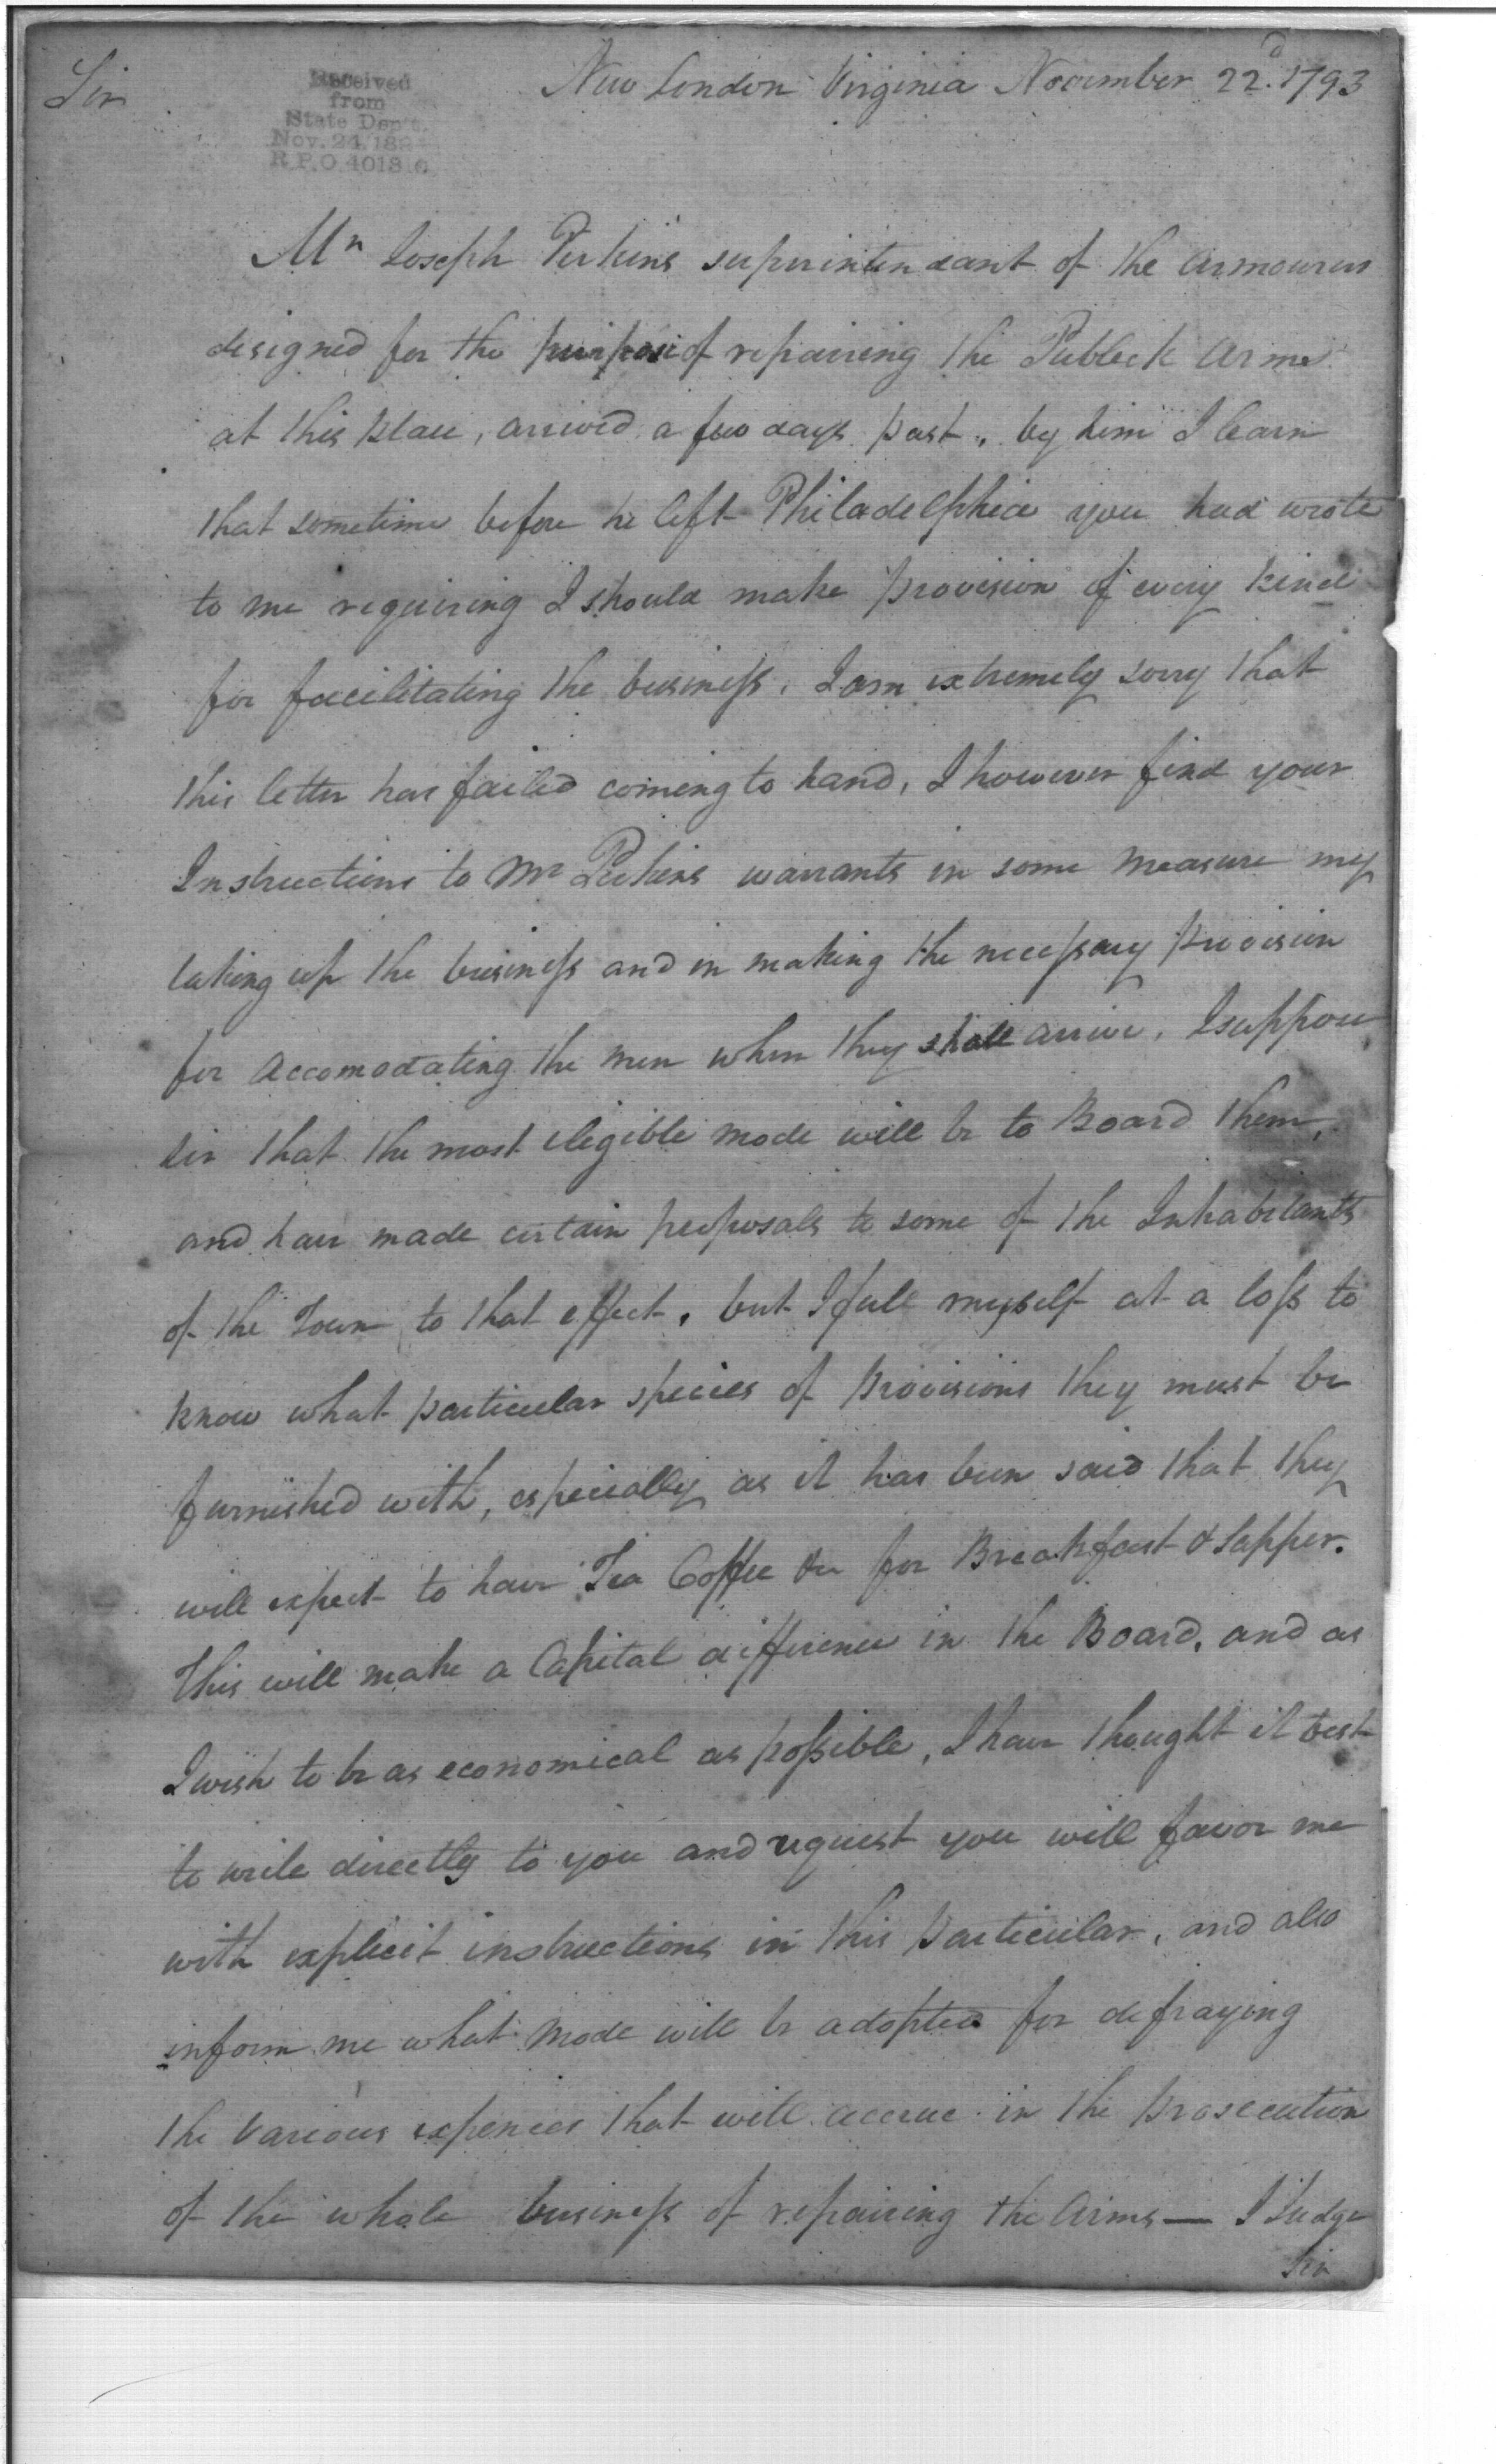 Sir
New London Virginia November 22d. 1793
Received
from
State Dep't.
Nov. 24, 18
R.P.O. 4018
Mr Joseph Perkins superintendant of the armourers
designed for the purpose of repairing the Publick arms
at this place, arrived a few days past, by him I learn
that sometime before he left Philadelphia you had wrote
to me requiring I should make provision of every kind
for facilitating the business. I am extremely sorry that
this letter has failed coming to hand, I however find your
Instructions to Mr Perkins warrants in some measure my
taking up the business and in making the necessary provision
for accomodating the men when they shall arrive. I suppose
sir that the most eligible mode will be to Board them,
and have made certain proposals to some of the Inhabitants
of the Town to that effect, but I feel myself at a loss to
know what particular species of provisions they must be
furnished with, especially as it has been said that they
will expect to have Tea Coffee &c for Breakfast & Supper.
This will make a Capital difference in the Board, and as
I wish to be as economical as possible, I have thought it best
to write directly to you and request you will favor me
with explicit instructions in this particular, and also
inform me what mode will be adopted for defraying
the various expences that will accrue in the prosecution
of the whole business of repairing the Arms — I Judge
Sir